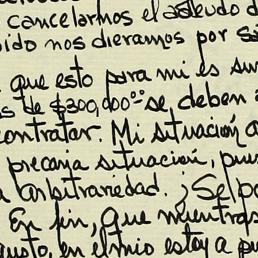 cancelarnos el adeudo d
ido nos dieramos por sa
que esto para mi es su
s de $300,000.00 se deben a
contratar. Mi situación a
precaria situación, pue
a arbitrariedad. ¿Se po
En fin, que mientras
gusto, en el mio estoy a pu